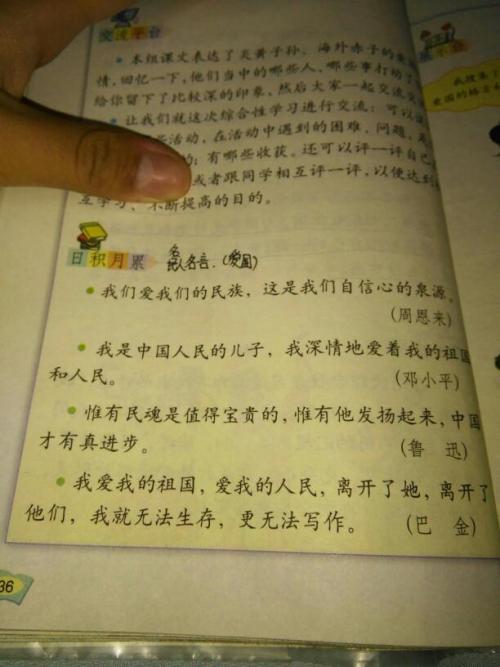 交流平台
· 本组课文表达了炎黄子孙、海外赤子的爱
情,回忆一下,他们当中的哪些人、哪些事打动了
给你留下了比较深的印象,然后大家一起交流
· 让我们就这次综合性学习进行交流:可以
些活动,在活动中遇到的困难、问题,
的;有哪些收获。还可以评一评自己
或者跟同学相互评一评,以便达到
互学习、不断提高的目的。
展示台
我搜集了
爱国的格言
日积月累 名人名言.(爱国)
· 我们爱我们的民族,这是我们自信心的泉源。
(周恩来)
· 我是中国人民的儿子,我深情地爱着我的祖国
和人民。 (邓小平)
· 惟有民魂是值得宝贵的,惟有他发扬起来,中国
才有真进步。 (鲁 迅)
· 我爱我的祖国,爱我的人民,离开了她,离开了
他们,我就无法生存,更无法写作。 (巴 金)
36